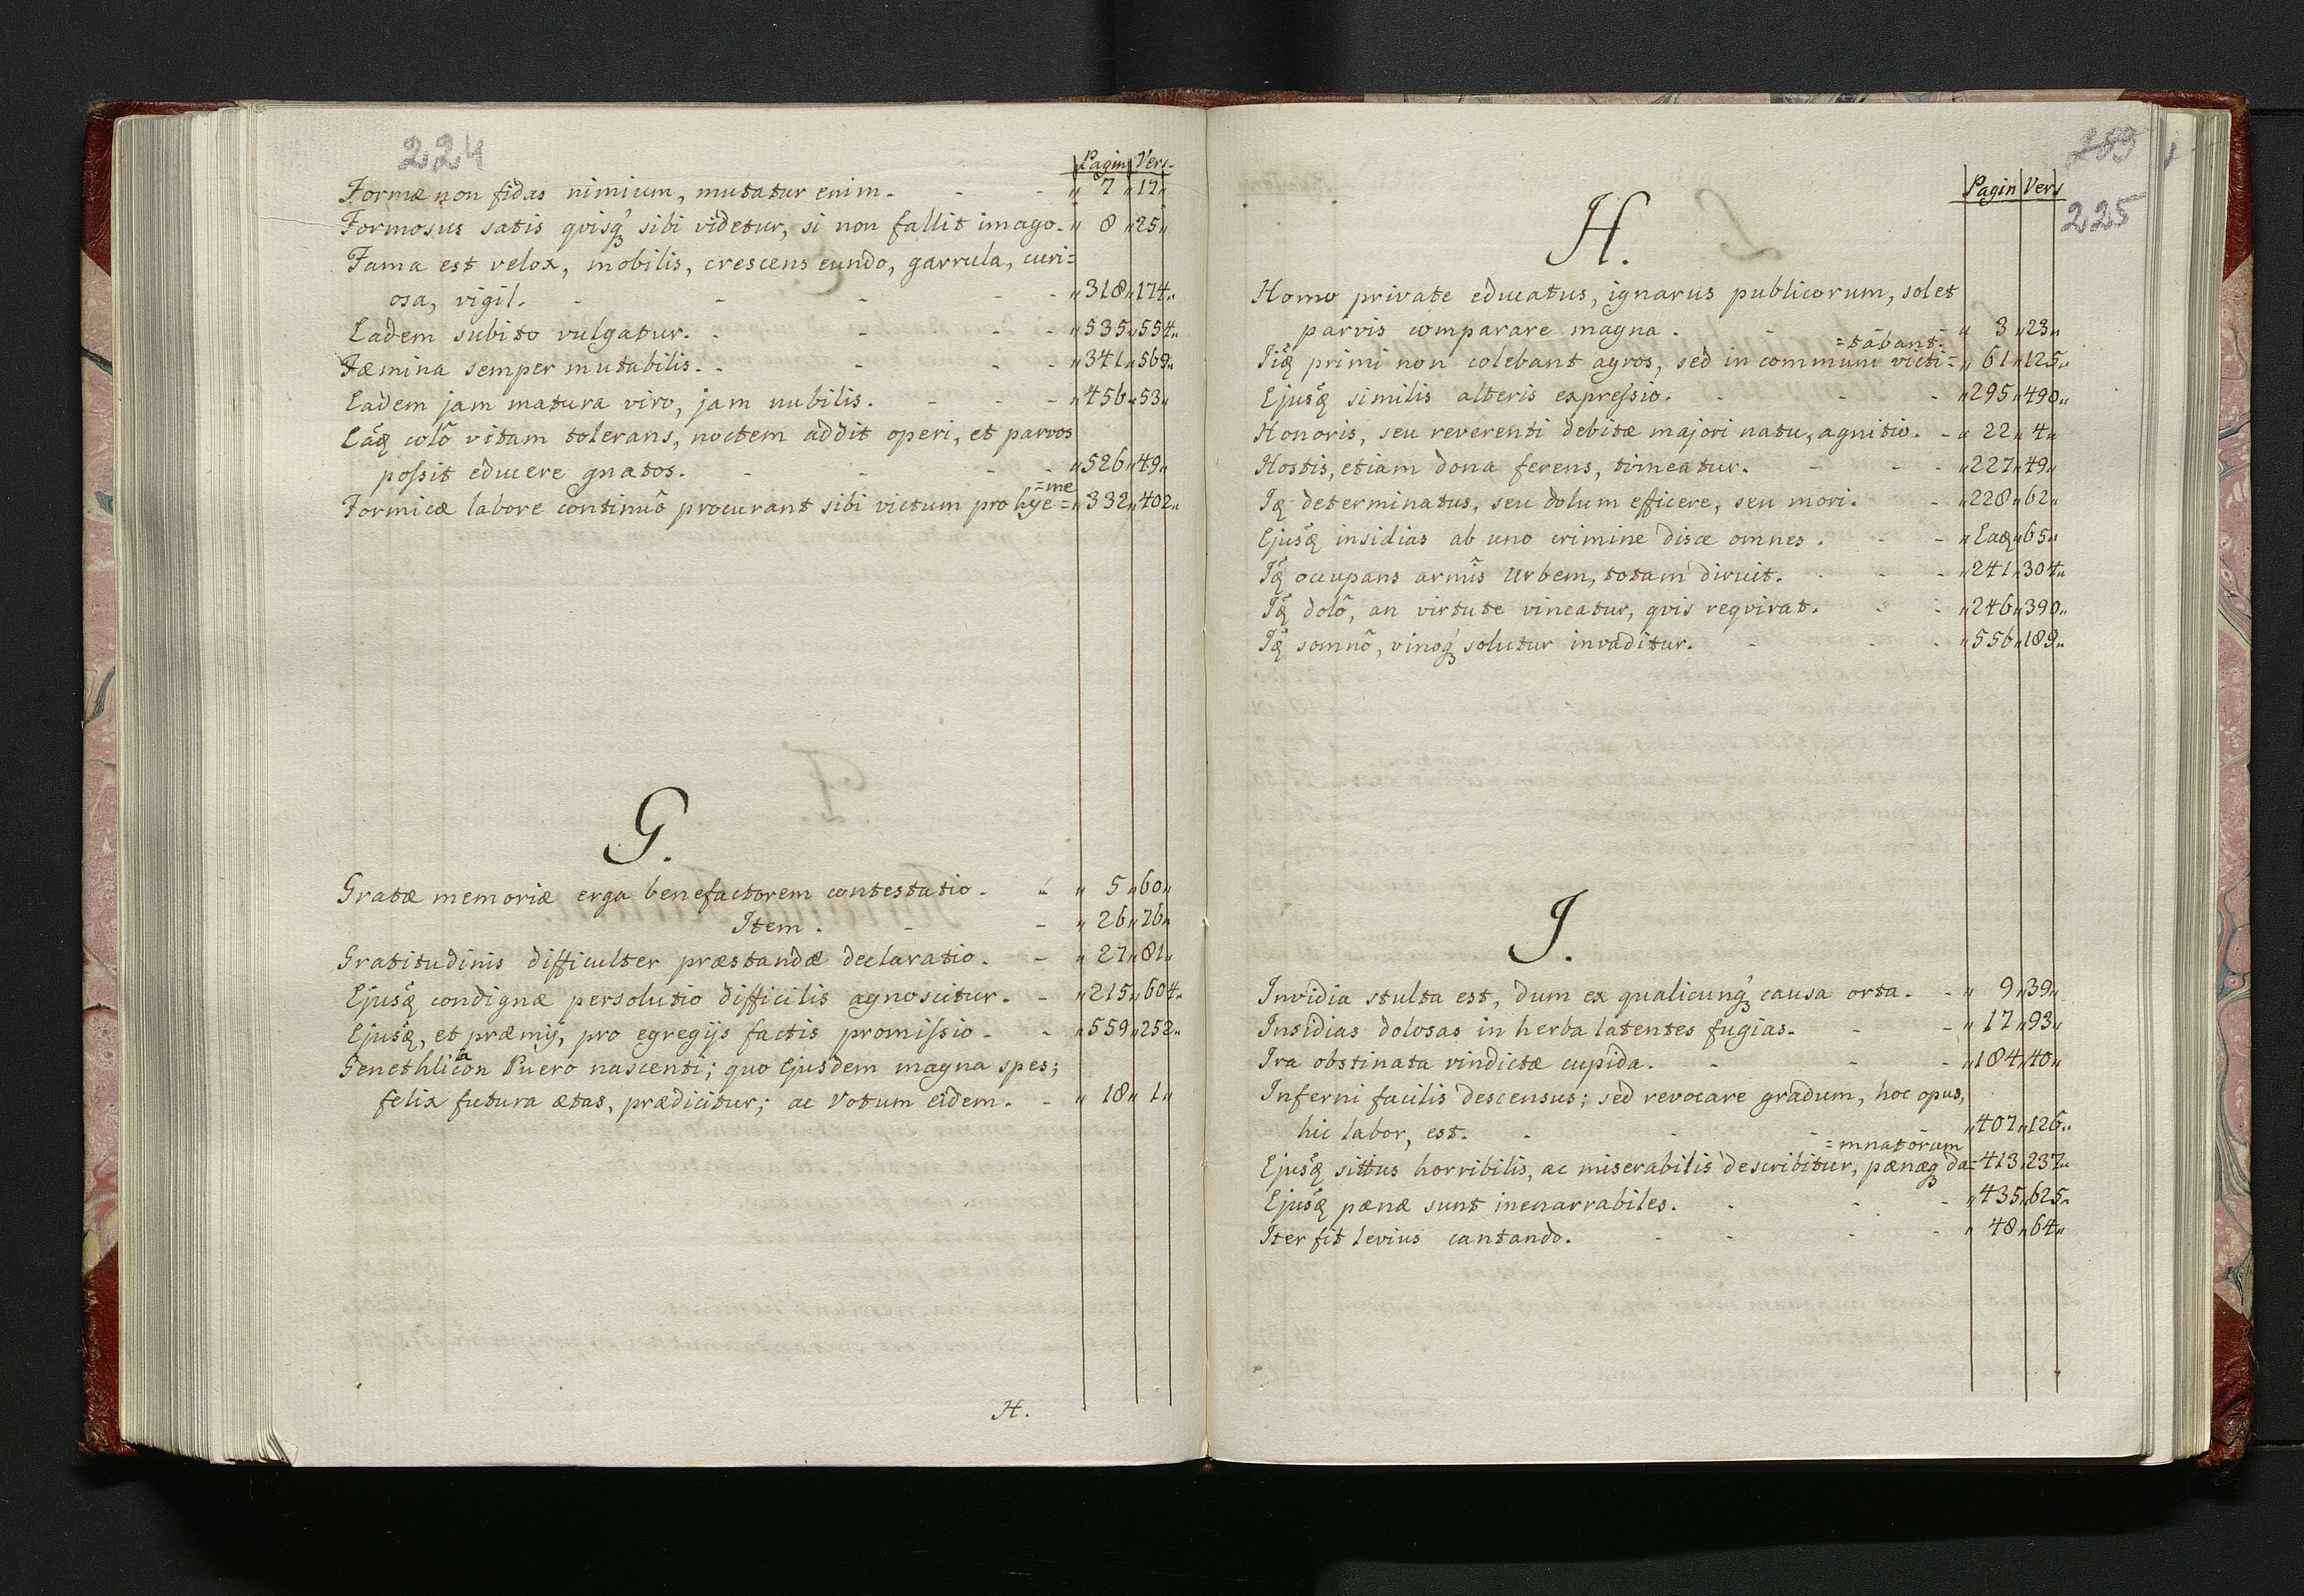 224
Pagin Vers.
Formæ non fidas nimium, mutatur enim. - - „ 7 „ 17„
Formosus satis qvisq́ʒ sibi videtur, si non fallit imago. „ 8 „25„
Fama est velox, mobilis, crescens eundo, garrula, curi=
osa, vigil. - - - - - „318„174„
Eadem subito vulgatur. - - - - „535„554„
Fæmina semper mutabilis. - - - - „341„569„
Eadem jam matura viro, jam nubilis. - - - „456„53„
Eáq colô vitam tolerans, noctem addit operi, et parvos
poſsit educere gnatos. - - - - „526„49„
=me
Formicæ labore continuô procurant sibi victum pro hye= „332„402„
G.
Gratæ memoriæ erga benefactorem contestatio. - „ 5 „60„
Item. - - „ 26„26„
Gratitudinis difficulter præstandæ declaratio. - „ 27„81„
Ejusq́ condignæ persolutio difficilis agnoscitur. - „215„604„
Ejusq́, et præmij, pro egregijs factis promiſsio - - „559„252„
a
Genethlicon Puero nascenti; quo Ejusdem magna spes;
felix futura ætas, prædicitur; ac Votum eidem. - „ 18„ 1„
H.
289
Pagin Vers
225
H.
Homo private educatus, ignarus publicorum, solet
parvis comparare magna. - - „ 3 „23„
=tabant.
Iiq́ primi non colebant agros, sed in commune victi= „ 61„125„
Ejusq́ similis alteris expreſsio. - - - „295„490„
Honoris, seu reverenti debitæ majori natu, agnitio. - „ 22„ 4„
Hostis, etiam dona ferens, timeatur. - - - „227„49„
Iq́ determinatus, seu dolum efficere, seu mori. - „228„62„
Ejusq́ insidias ab uno crimine disce omnes. - - „Eaq́„65„
Iq́ occupans armîs Urbem, totam diruit. - - - „241„304„
Iq́ dolô, an virtute vincatur, qvis reqvirat. - - „246„390„
Iq́ somnô, vinoq́ʒ solutur invaditur. - - - „556„189„
I.
Invidia stulta est, dum ex qualicunq́ʒ causa orta. - „ 9„39„
Insidias dolosas in herba latentes fugias. - - „ 17„93„
Ira obstinata vindictæ cupida. - - - „184„40„
Inferni facilis descensus; sed revocare gradum, hoc opus,
hic labor, est. - - - „407„126„
=mnatorum
Ejusq́ sittus horribilis, ac miserabilis describitur, pænæqʒ da= 413„237„
Ejusq́ pænæ sunt inenarrabiles. - - - „435„625„
Iter fit levius cantando. - - - - „ 48„64„